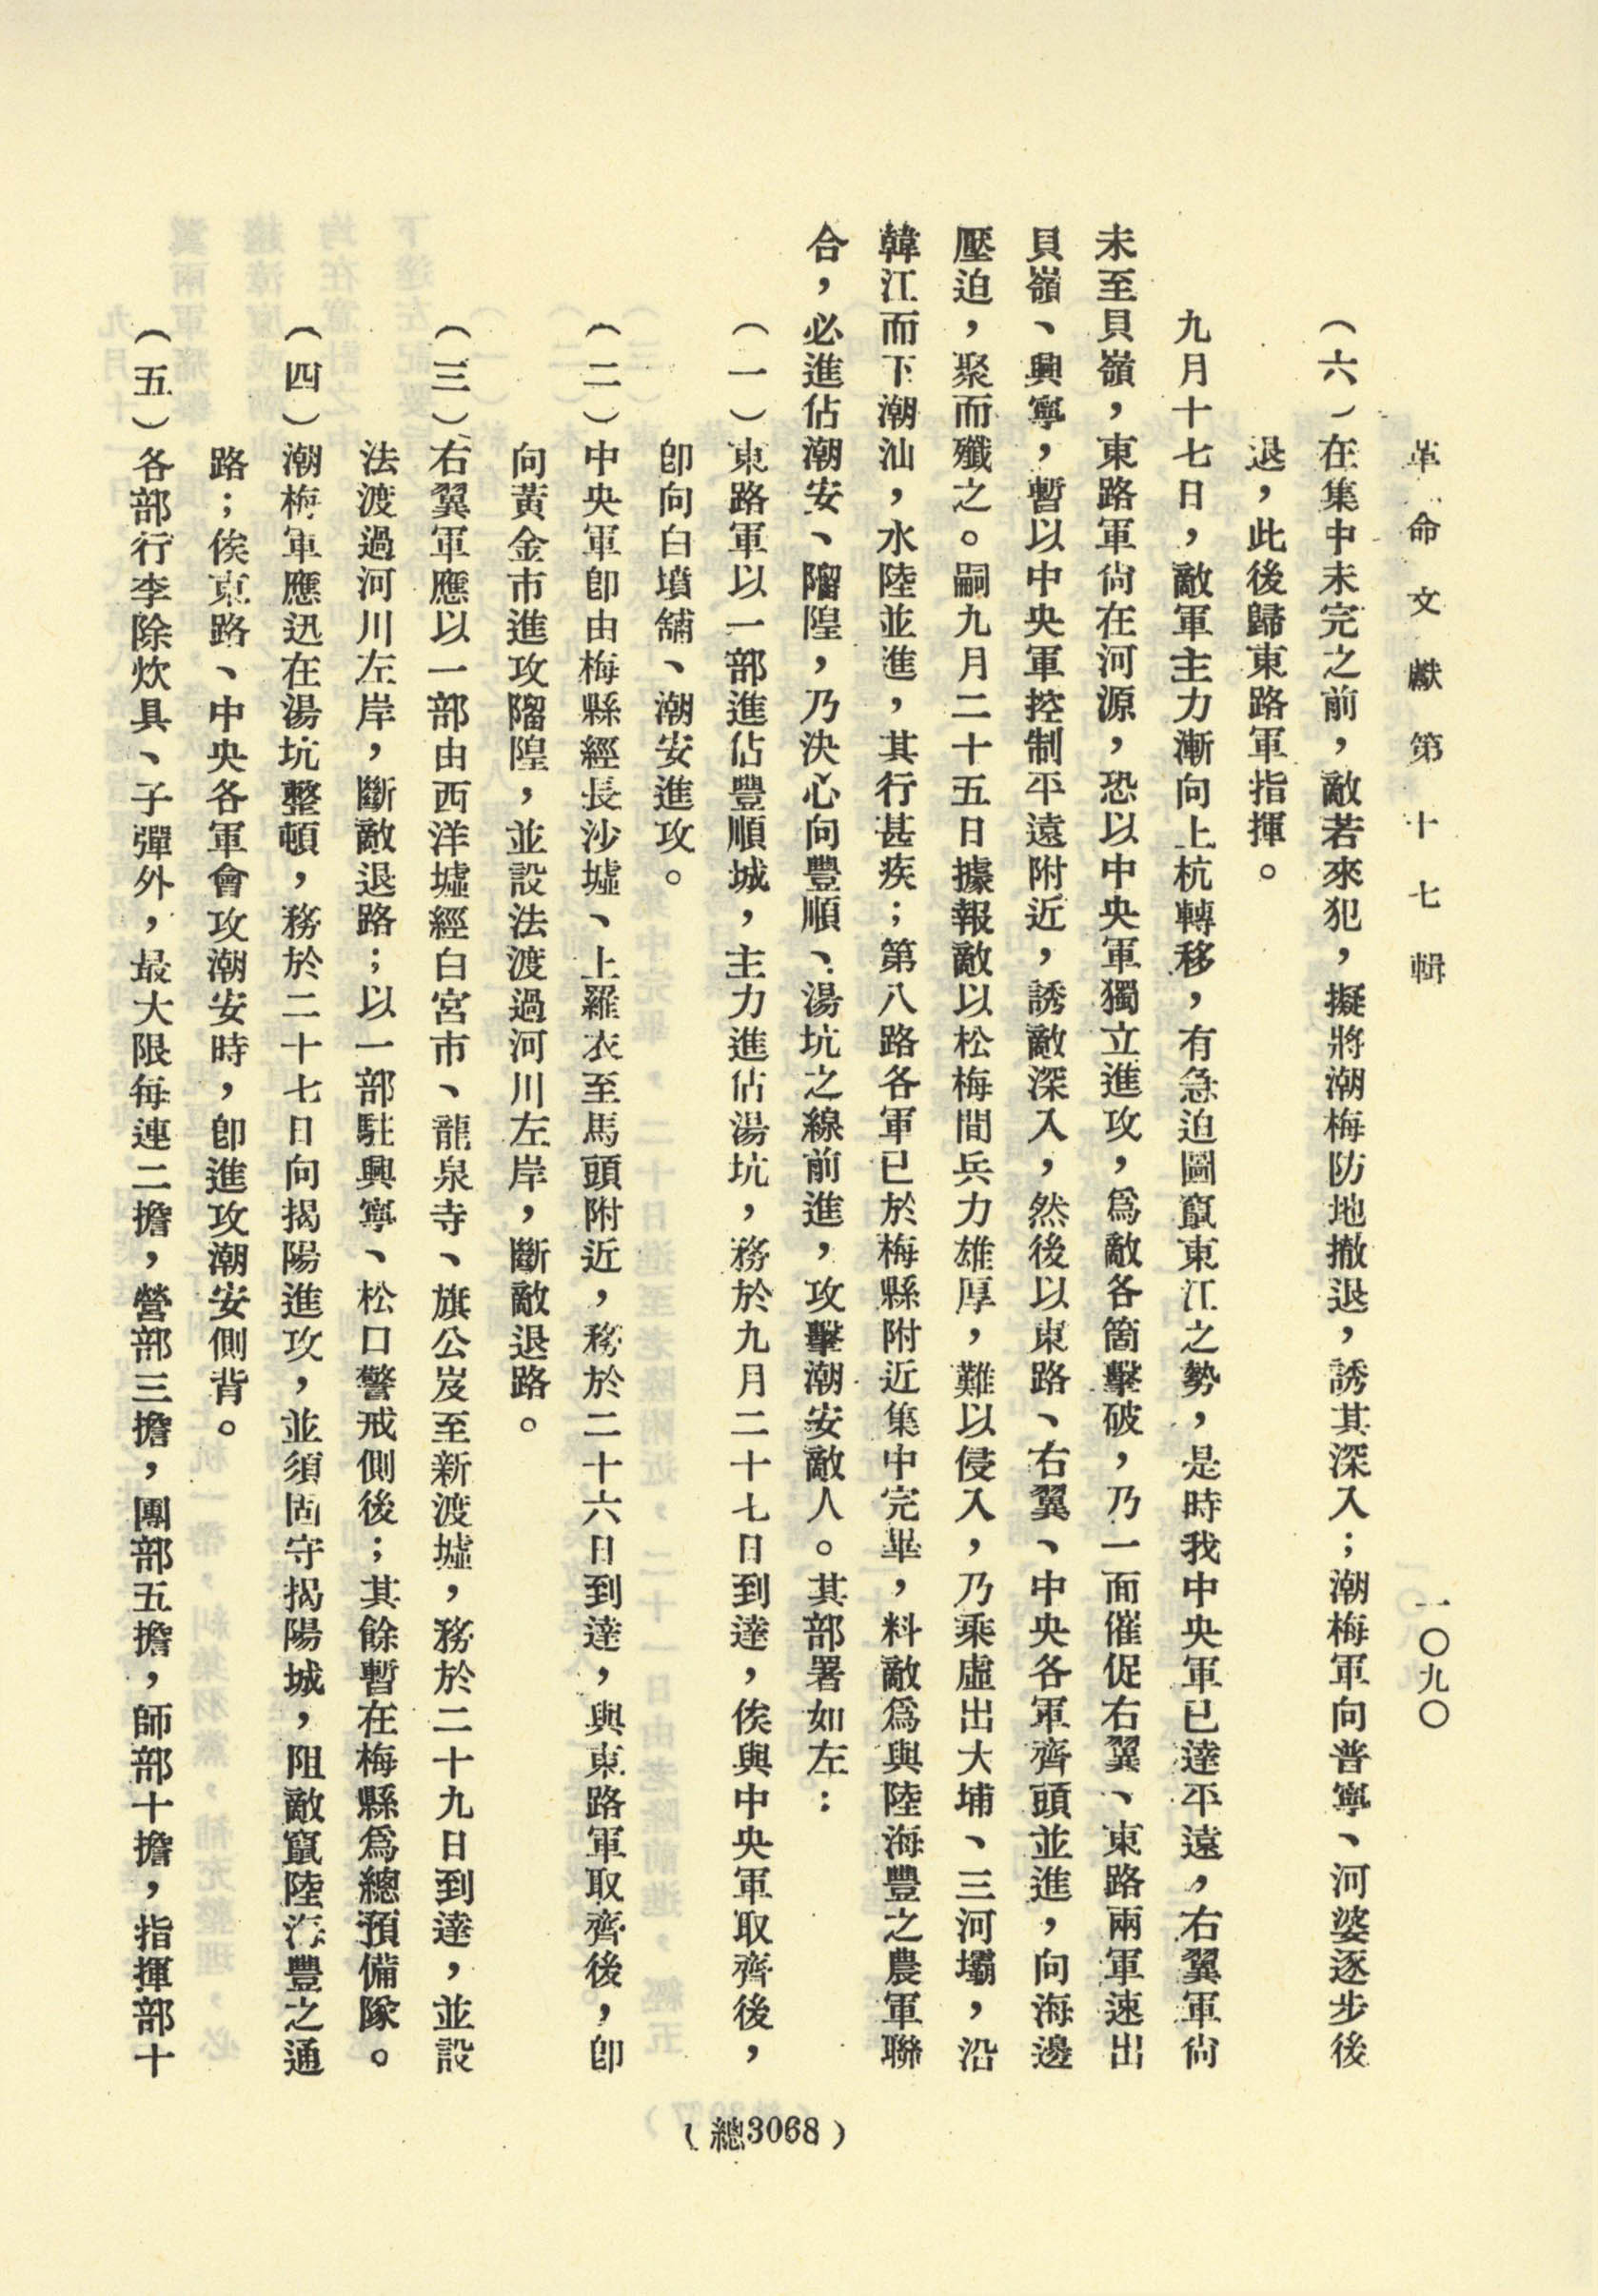 革命文獻第十七輯
一〇九〇
（六）在集中未完之前，敵若來犯，擬將潮梅防地撤退，誘其深入；潮梅軍向普寧、河婆逐步後
退，此後歸東路軍指揮。
九月十七日，敵軍主力漸向上杭轉移，有急迫圖竄東江之勢，是時我中央軍已達平遠，右翼軍尙
未至貝嶺，東路軍尙在河源，恐以中央軍獨立進攻，爲敵各箇擊破，乃一面催促右翼、東路兩軍速出
貝嶺、興寧，暫以中央軍控制平遠附近，誘敵深入，然後以東路、右翼、中央各軍齊頭並進，向海邊
壓迫，聚而殲之。嗣九月二十五日據報敵以松梅間兵力雄厚，難以侵入，乃乘虛出大埔、三河壩，沿
韓江而下潮汕，水陸並進，其行甚疾；第八路各軍已於梅縣附近集中完畢，料敵爲與陸海豐之農軍聯
合，必進佔潮安、隬隍，乃決心向豐順、湯坑之線前進，攻擊潮安敵人。其部署如左：
（一）東路軍以一部進佔豐順城，主力進佔湯坑，務於九月二十七日到達，俟與中央軍取齊後，
卽向白墳舖、潮安進攻。
（二）中央軍卽由梅縣經長沙墟、上羅衣至馬頭附近，務於二十六日到達，與東路軍取齊後，卽
向黃金市進攻隬隍，並設法渡過河川左岸，斷敵退路。
（三）右翼軍應以一部由西洋墟經白宮市、龍泉寺、旗公岌至新渡墟，務於二十九日到達，並設
法渡過河川左岸，斷敵退路；以一部駐興寧、松口警戒側後；其餘暫在梅縣爲總預備隊。
（四）潮梅軍應迅在湯坑整頓，務於二十七日向揭陽進攻，並須固守揭陽城，阻敵竄陸海豐之通
路；俟東路、中央各軍會攻潮安時，卽進攻潮安側背。
（五）各部行李除炊具、子彈外，最大限每連二擔，營部三擔，團部五擔，師部十擔，指揮部十
（總3068）